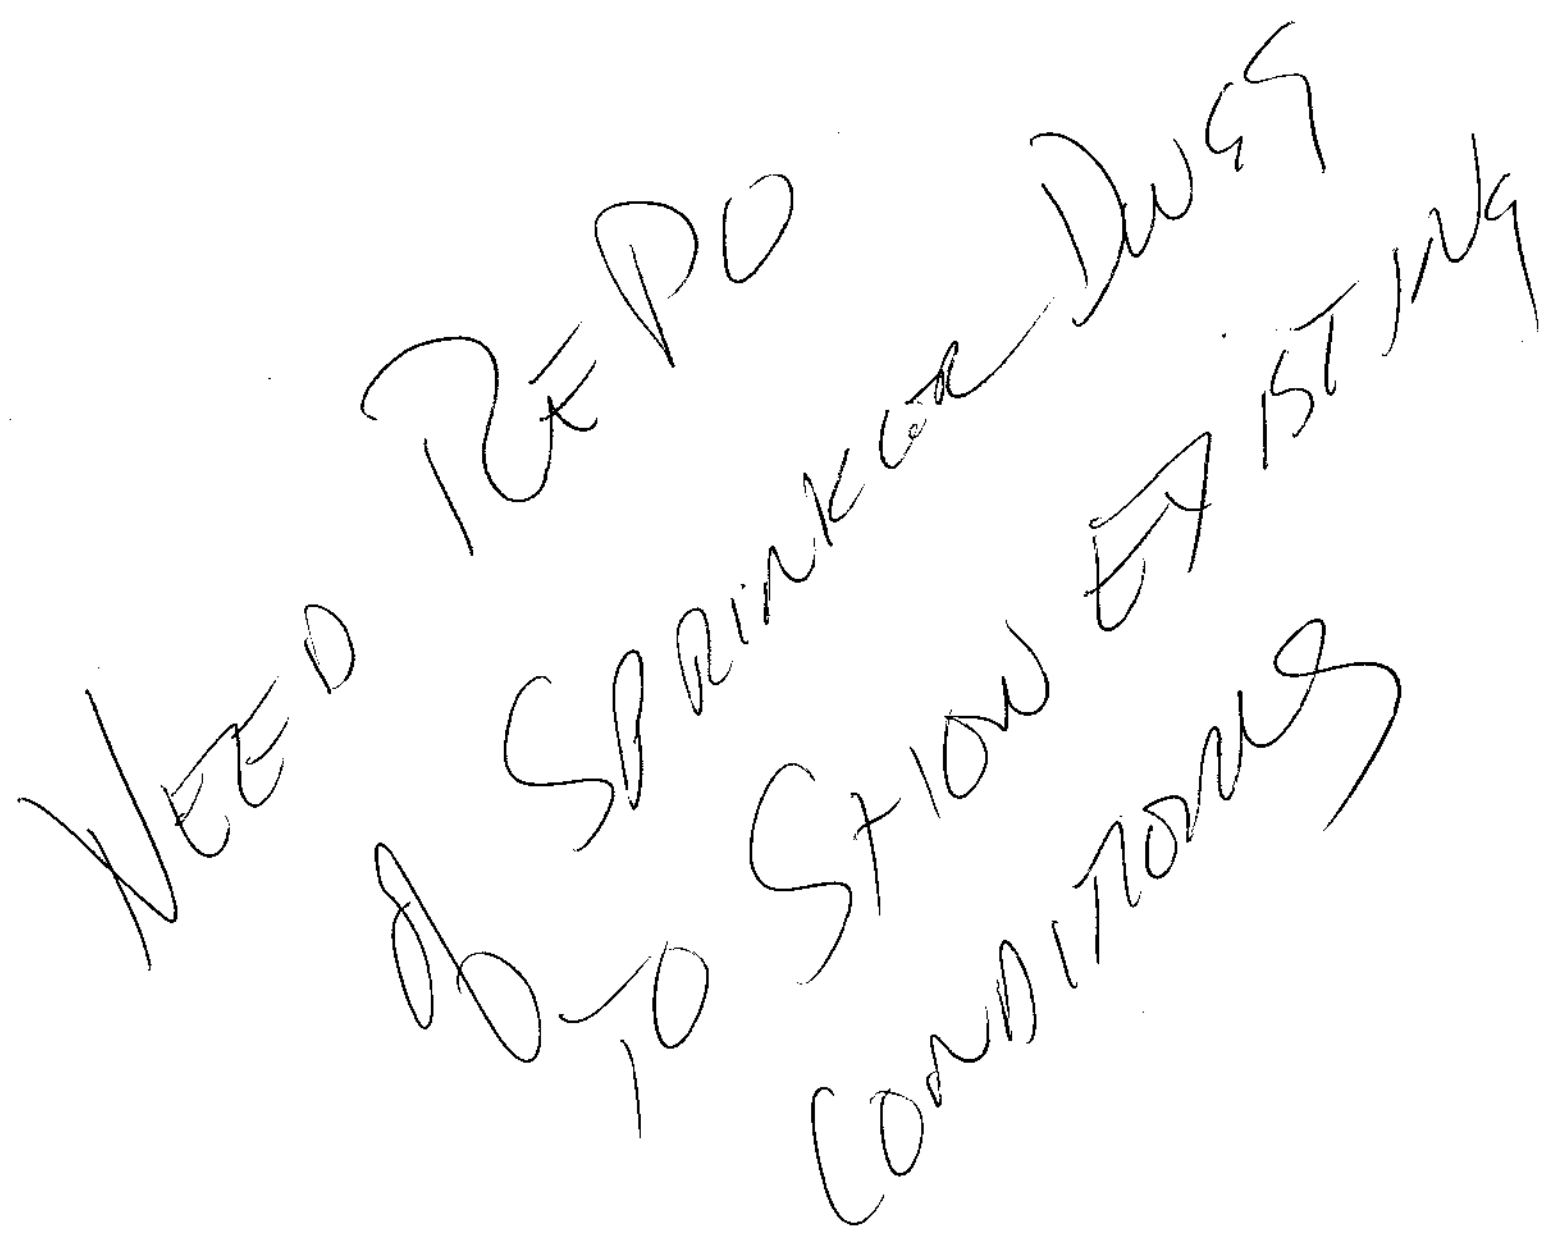 NEED REPO
of SPRINKLER DWGS
TO SHOW EXISTING
CONDITIONS